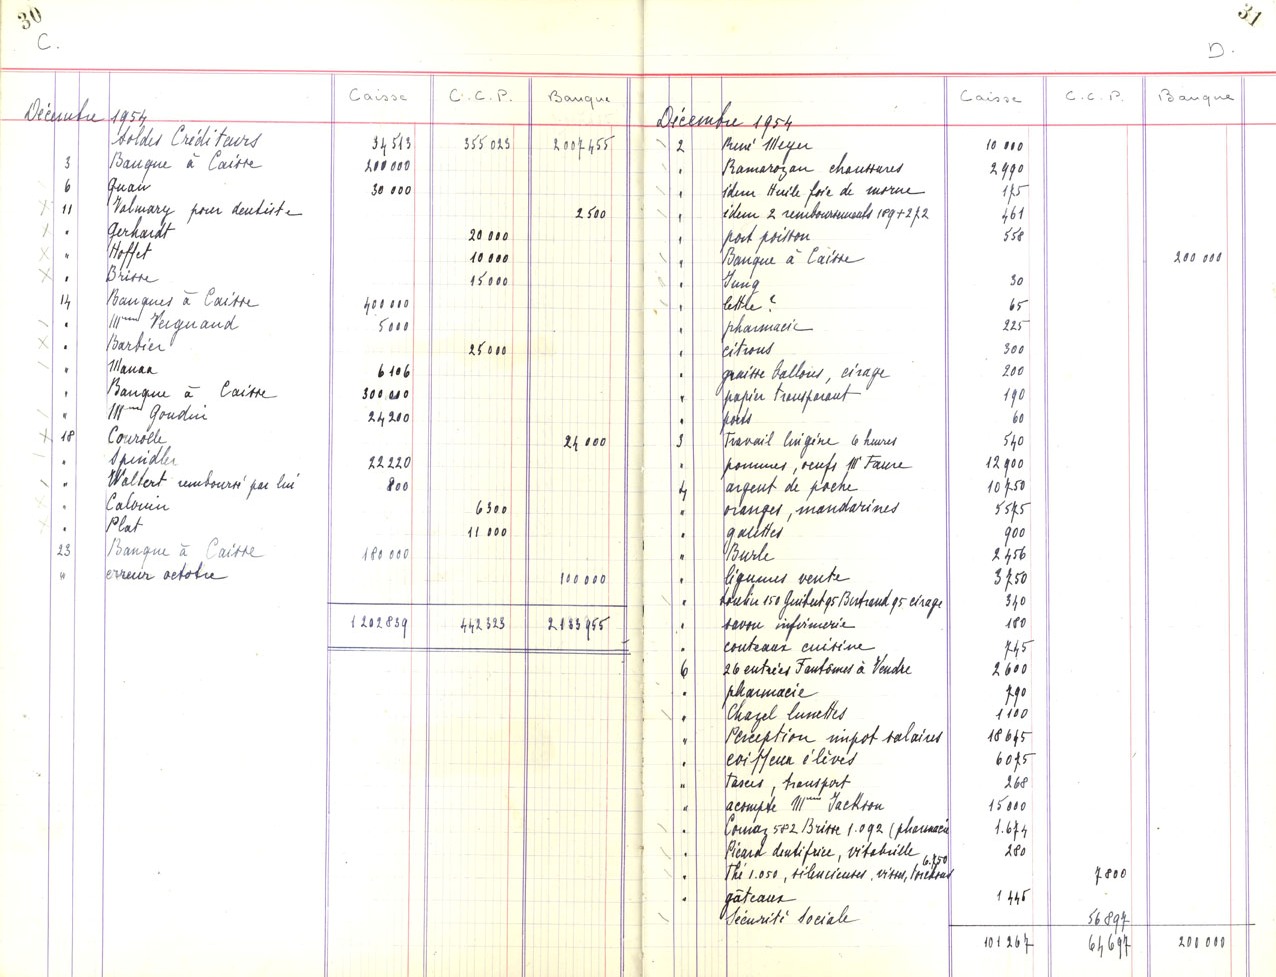 30
C.
Caisse C.C.P. Banque
Décembre 1954
Soldes Créditeurs 34513 355023 2007455
3 Banque à Caisse 200000
6 Quan 30000
11 Valmary pour dentiste 2500
" Gerhardt 20000
" Hoffet 10000
" Brisse 15000
14 Banques à Caisse 400000
" Mme Vergnaud 5000
" Barbier 25000
" Manaa 6106
" Banque à Caisse 300000
" Mme Goudin 24200
18 Courolle 24000
" Spindler 22220
" Waltert remboursé par lui 800
" Calvuin 6300
" Plat 11000
23 Banque à Caisse 180000
" erreur octobre 100000
1202839 442323 2133955
31
D.
Caisse C.C.P. Banque
Décembre 1954
2 René Meyer 10000
" Ramarozan chaussures 2990
" idem Huile foie de morue 175
" idem 2 remboursements 189+272 461
" port poisson 558
" Banque à Caisse 200000
" Jung 30
" lettre ? 65
" pharmacie 225
" citrons 300
" graisse ballons, cirage 200
" papier transparant 190
" ports 60
3 Travail lingère 6 heures 540
" pommes, oeufs Mr Faure 12900
4 argent de poche 10750
" oranges, mandarines 5575
" galettes 900
" Burle 2456
" légumes vente 3750
" Soubie 150 Guibert 95 Bertrand 95 cirage 340
" savon infirmerie 180
" couteaux cuisine 745
6 26 entrées Fantômes à Vendre 2600
" pharmacie 790
" Chazel lunettes 1100
" Perception impot salaires 18645
" coiffeur élèves 6075
" taxes, transport 268
" acompte Mme Jackson 15000
" Cornaz 582 Brisse 1.092 (pharmacie 1.674
" Picard dentifrice, vitabrille 280
" Thé 1.050, silencieuses, visses, torchons 6.750 7800
" gâteaux 1445
Sécurité Sociale 56897
101267 64697 200000